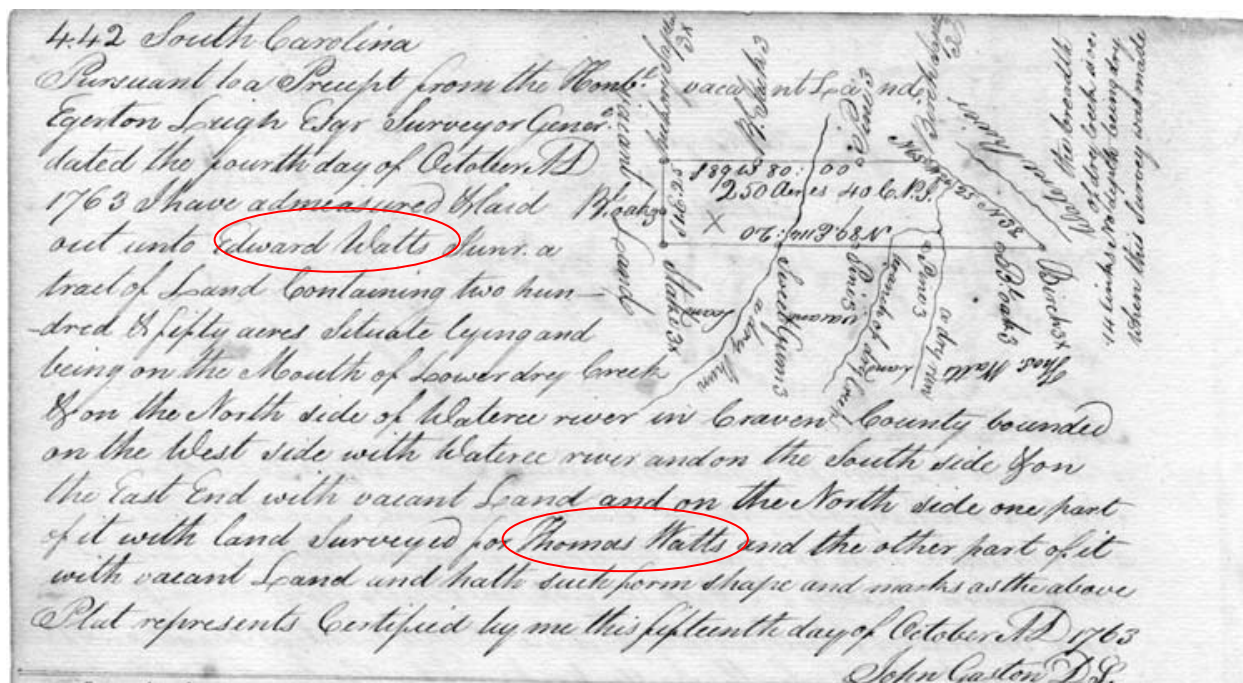 442 South Carolina
Pursuant to a Precept from the Honble.
Egerton Leigh Esqr Surveyor Generl.
dated the fourth day of October AD
1763 I have admeasured & laid
out unto Edward Watts Junr. a
tract of Land Containing two hun-
-dred & fifty acres Situate lying and
being on the Mouth of Lower drey Creek
& on the North side of Wateree river in Craven County bounded
on the West side with Wateree river and on the South side & on
the East End with vacant Land and on the North side one part
of it with land Surveyed for Thomas Watts and the other part of it
with vacant Land and hath such form shape and marks as the above
Plat represents Certified by me this fifteenth day of October AD 1763
John Gaston D S.
vacant Land
vacant Land
250 Acres 40 C. P. I.
X
Stake 3x
Sweet Gum 3
a dry run
Pine 3
vacant Land
branch of dry Creek
a Pine 3
a dry run
B. oak 3
Birch 3x
Thos. Watts Land
Wateree River
Note the breadth
of dry creek is over
44 links No depth being dry
when this Survey was made